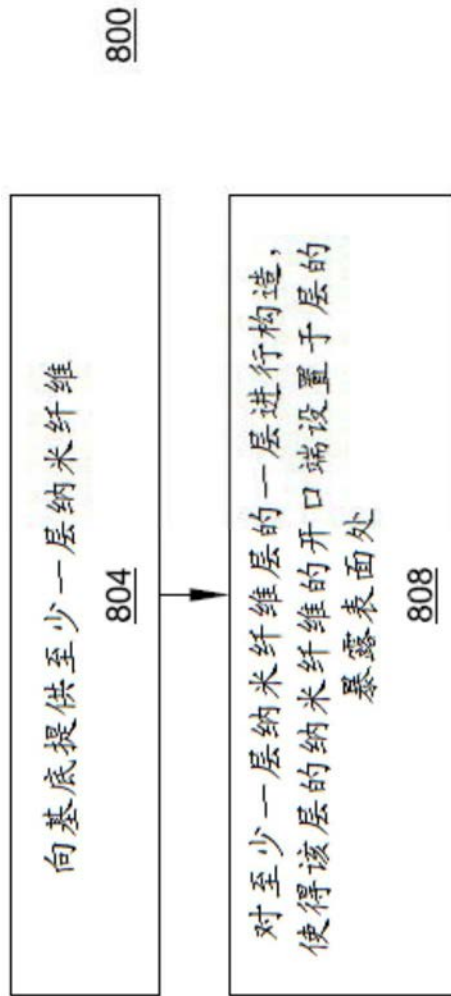 800
向基底提供至少一层纳米纤维
804
对至少一层纳米纤维层的一层进行构造，
使得该层的纳米纤维的开口端设置于层的
暴露表面处
808